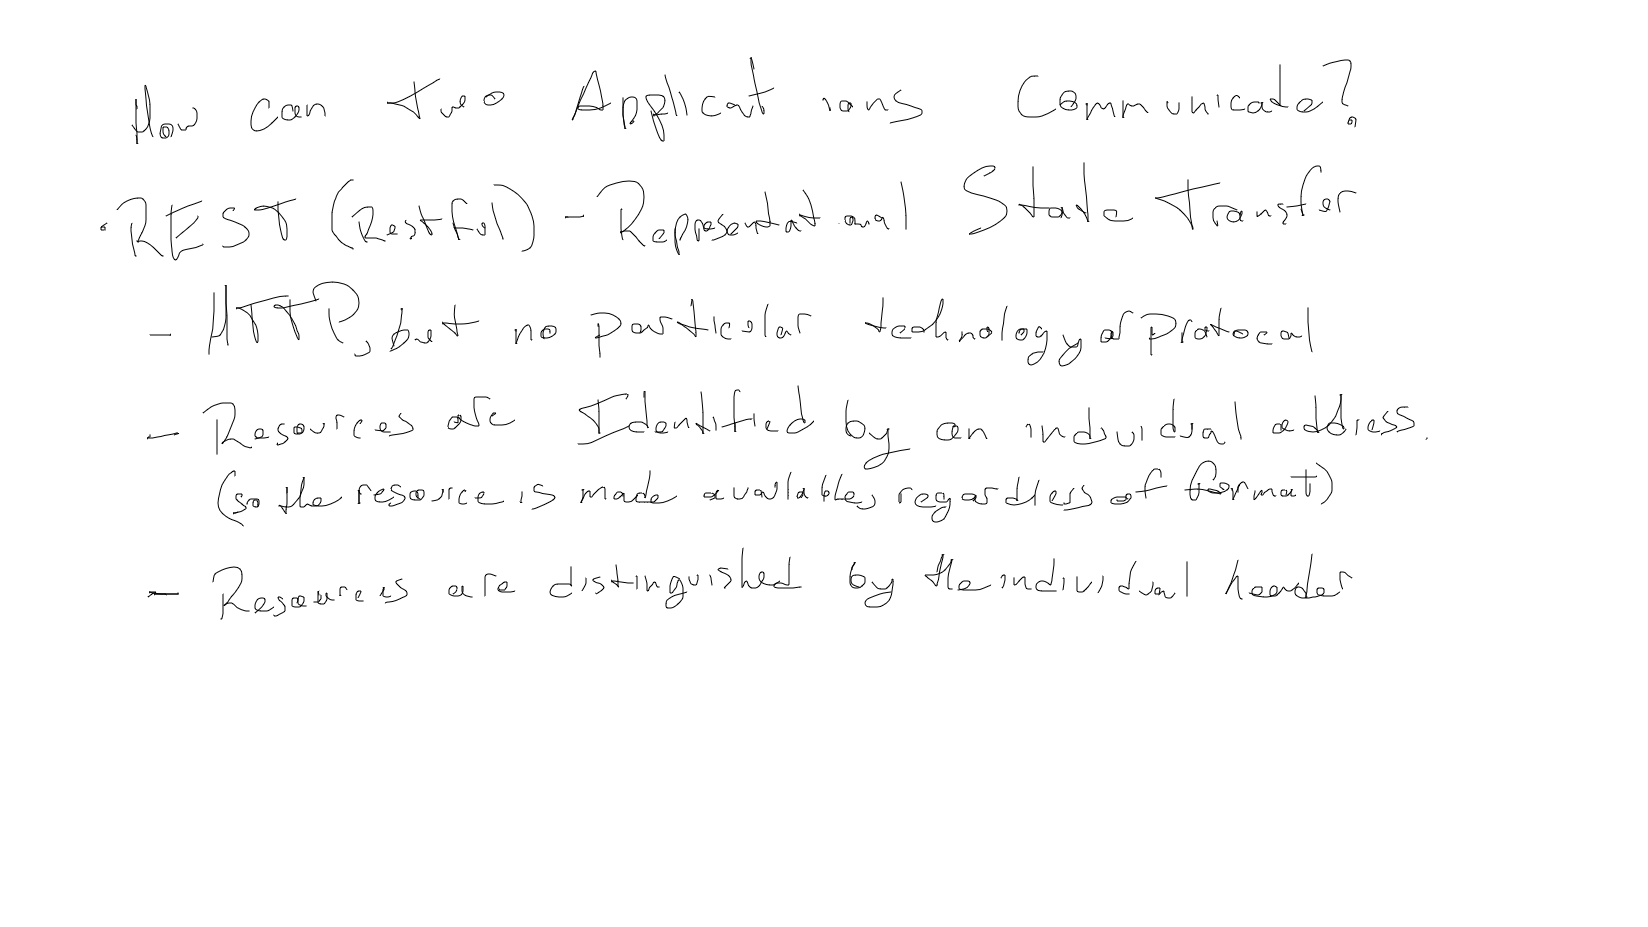 How can two Applications Communicate?
• REST (Restful) - Representational State Transfer
- HTTP, but no particular technology or protocal
- Resources are Identified by an individual address.
(so the resource is made available, regardless of format)
- Resources are distinguished by the individual header